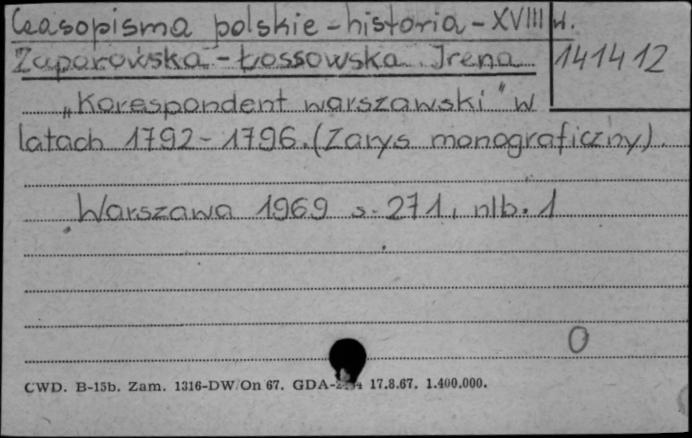 Czasopisma polskie - historia - XVIII w.
Zaporowska - Łossowska Irena
141412
"Korespondent warszawski" w
latach 1792 - 1796. (Zarys monograficzny).
Warszawa 1969 s. 271, nlb. 1
0
CWD. B-15b. Zam. 1316-DW/On 67. GDA- 17.8.67. 1.400.000.